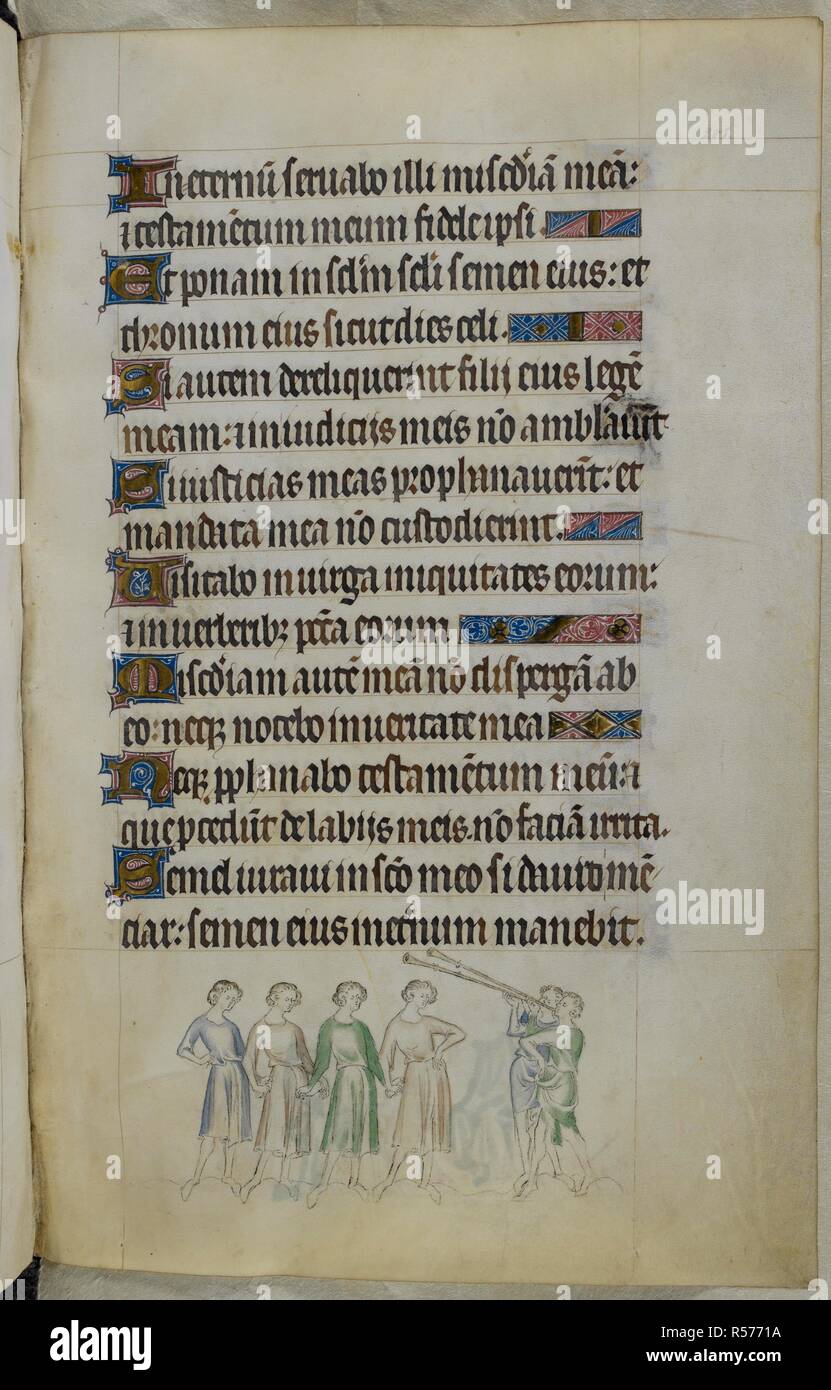 In eternū seruabo illi misc̄diā meā:
⁊ testamētum meum fidele ipsi.
Et ponam in sclm̄ scli semen eius: et
thronum eius sicut dies celi.
Si autem dereliquerint filij eius legē
meam: ⁊ in iudicijs meis nō amblauūt
Si iusticias meas prophanauerīt: et
mandata mea nō custodierint.
Uisitabo in uirga iniquitates eorum:
⁊ in uerberibꝫ pctā eorum
Misc̄diam autē meā nō dispergā ab
eo: neqꝫ nocebo in ueritate mea
Neqꝫ ꝓphanabo testamētum meū: ⁊
que ꝓcedūt de labijs meis. nō faciā irrita.
Semel iuraui in scō meo si dauid mē
ciar: semen eius in et̄num manebit.
alamy
a
alamy
www.alamy.com
Image ID: R5771A